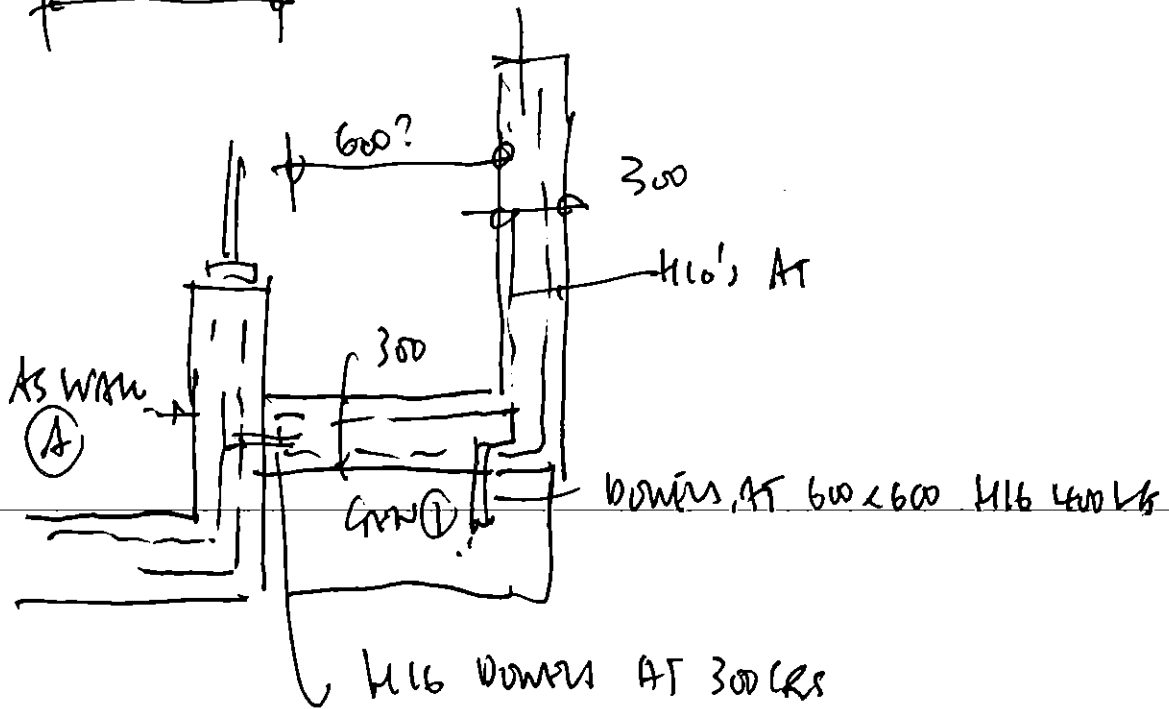 600?
300
H10's AT
300
AS WALL
A
DOWELS AT 600 x 600 H16 400 LG
1
H16 DOWELS AT 300 CRS